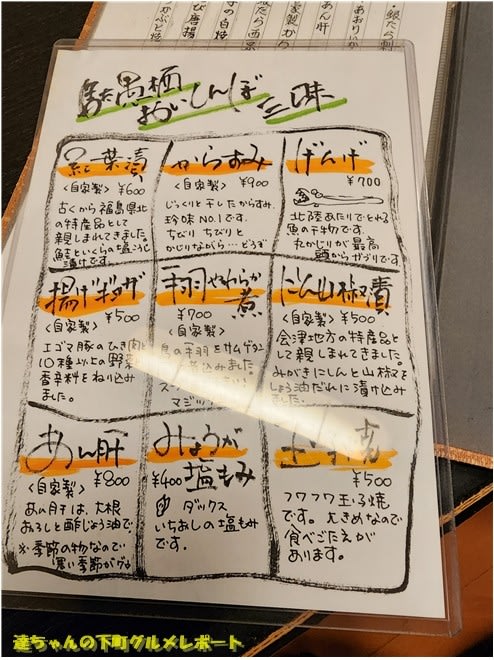 ・銀だら刺
銀だら西京
自家製から
あん肝
あおりいか
び唐揚
おいしんぼ三昧
紅葉漬
<自家製> ¥600
古くから福島県北
の特産品として
親しまれてきました。
鮭といくらの塩こうじ
漬けです。
からすみ
<自家製> ¥900
じっくりと干したからすみ。
珍味No.1です。
ちびり ちびりと
かじりながら…どうぞ
げんげ
¥700
北陸あたりでとれる
魚の干物です。
丸かじりが最高
頭からガブリです
揚げギョウザ
<自家製> ¥500
エゴマ豚のひき肉と
10種以上の野菜
香辛料をねり込み
ました。
手羽やわらか
煮
<自家製> ¥700
鳥の手羽をサムゲタン
込みました。
マジッ
にしん山椒漬
<自家製> ¥500
会津地方の特産品と
して親しまれてきました。
みがきにしんと山椒を
しょう油だれに漬け込み
ました。
あん肝
<自家製> ¥800
あん肝は、大根
おろしと酢じょう油で。
※季節の物なので
寒い季節が
みょうが
塩もみ
¥400
ダックス
いちおしの塩もみ
です。
玉子焼
¥500
フワフワ玉子焼
です。大きめなので
食べごたえが
あります。
達ちゃんの下町グルメレポート